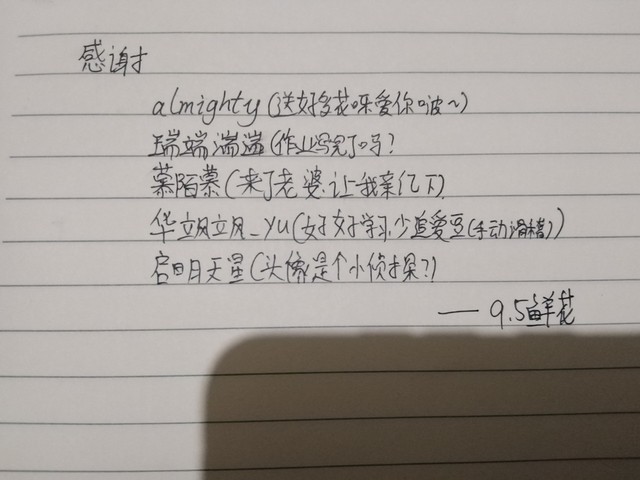 感谢
almighty(送好多花呀爱你啵~)
瑞端湍遄(作业写完了吗?
慕陌慕(来了老婆.让我亲亿下)
华飒飒_yu(好好学习,少追爱豆(手动滑稽))
启明天星(头像是个小侦探?)
—9.5鲜花